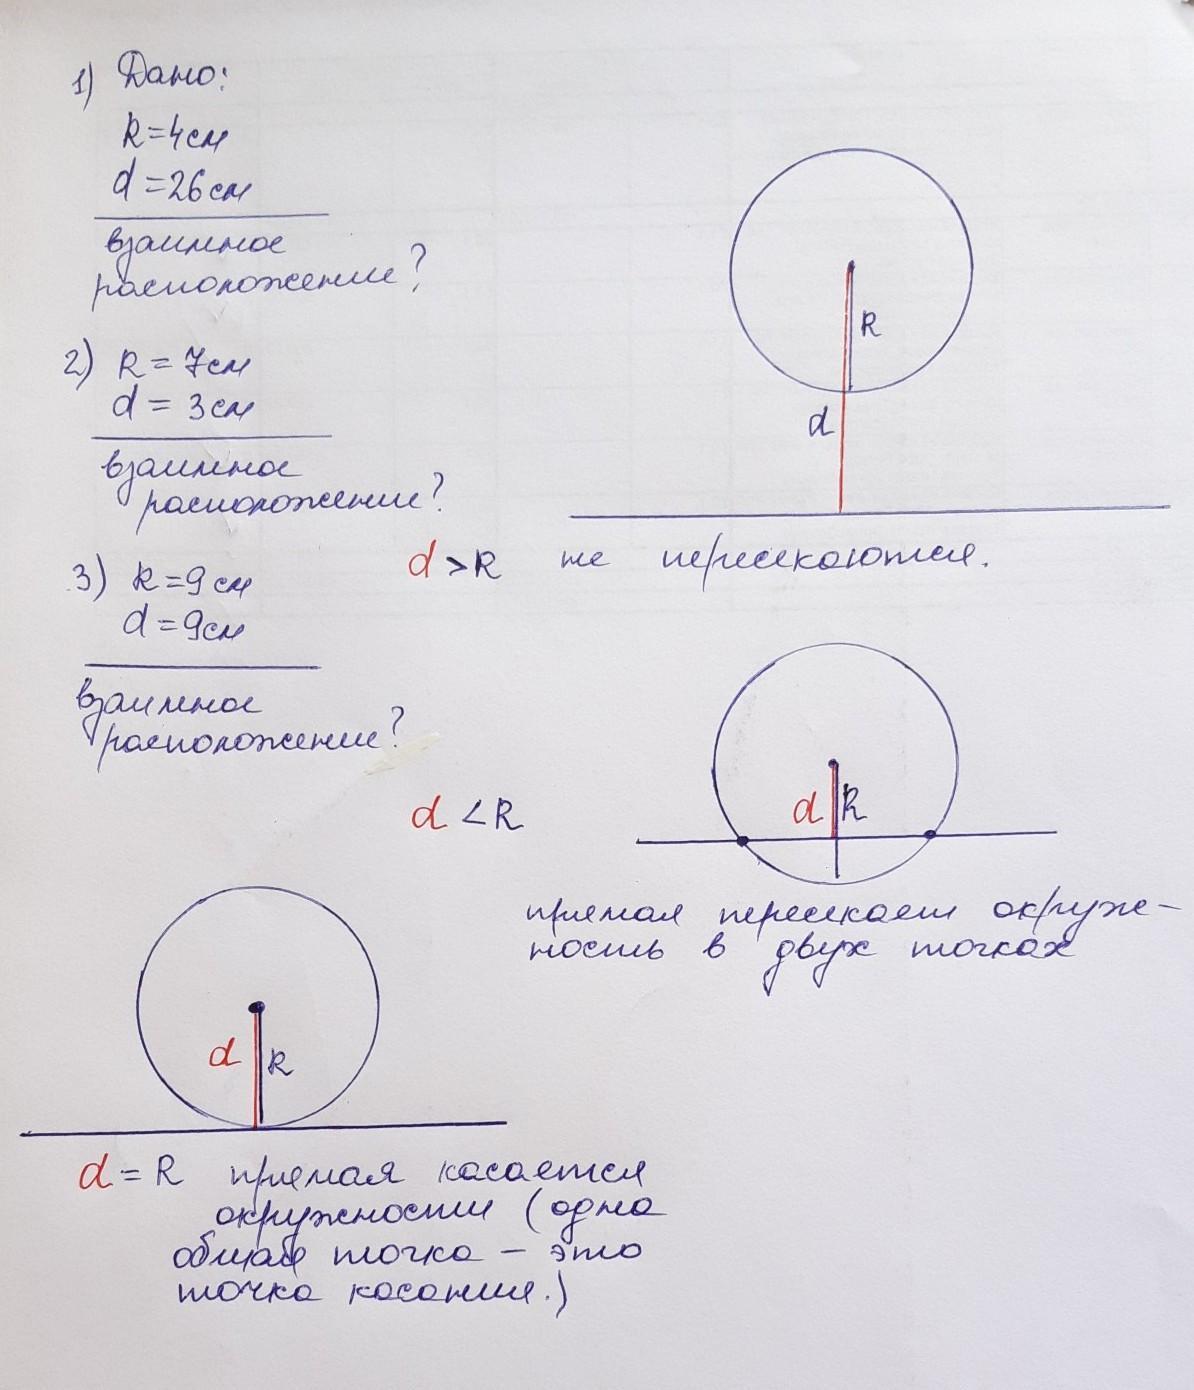 1) Дано:
R=4см
d=26см
взаимное
расположение?
2) R = 7см
d = 3см
взаимное
расположение?
3) R=9см
d=9см
взаимное
расположение?
R
d
d>R не пересекаются.
d R
d <R
прямая пересекает окруж-
ность в двух точках
d R
d = R прямая касается
окружности (одна
общая точка – это
точка касания.)